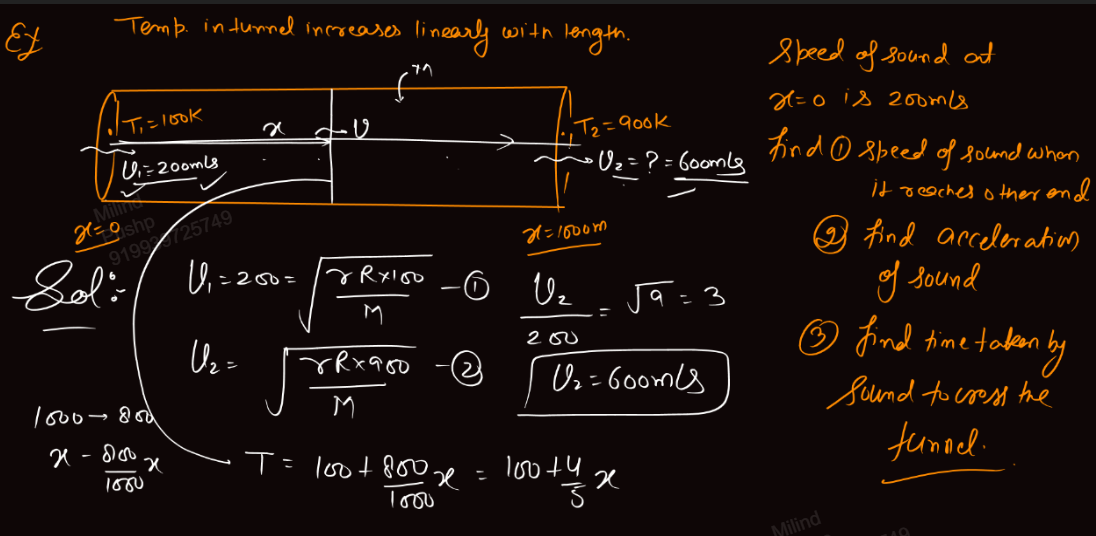 Ex
Temp. in tunnel increases linearly with length.
T₁ = 100K
x
V
T₂ = 900K
V₁ = 200m/s
V₂ = ? = 600m/s
x=0
x = 1000m
Speed of sound at
x=0 is 200m/s
find ① speed of sound when
it reaches other end
② find acceleration
of sound
③ find time taken by
sound to cross the
tunnel.
Sol:
V₁ = 200 = √(γR×100/M) -①
V₂/200 = √9 = 3
V₂ = √(γR×900/M) -②
V₂ = 600m/s
1000 → 800
x - 800/1000 x
T = 100 + 800/1000 x = 100 + 4/5 x
Milind
Milind